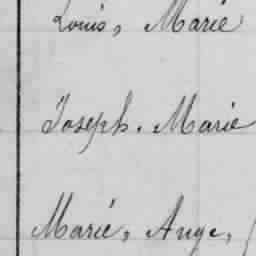 Louis, Marie
Joseph. Marie
Marie, Ange,